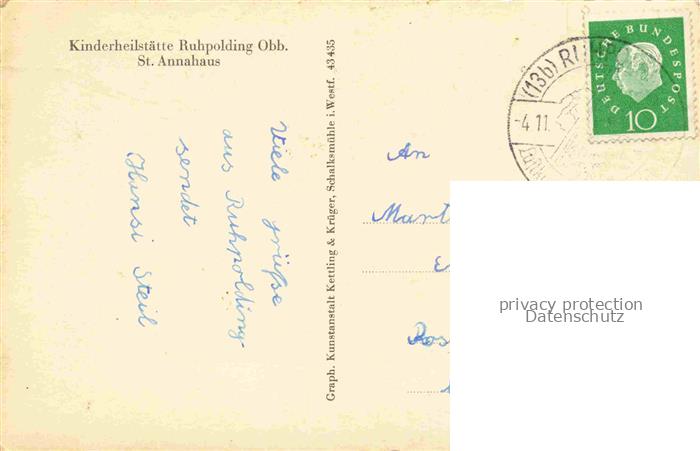 Kinderheilstätte Ruhpolding Obb.
St. Annahaus
Viele grüße
aus Ruhpolding
sendet
Hansi Steil
Graph. Kunstanstalt Kettling & Krüger, Schalksmühle i.Westf. 43435
(13b) RU
-4.11.
DEUTSCHE BUNDESPOST
10
An
privacy protection
Datenschutz